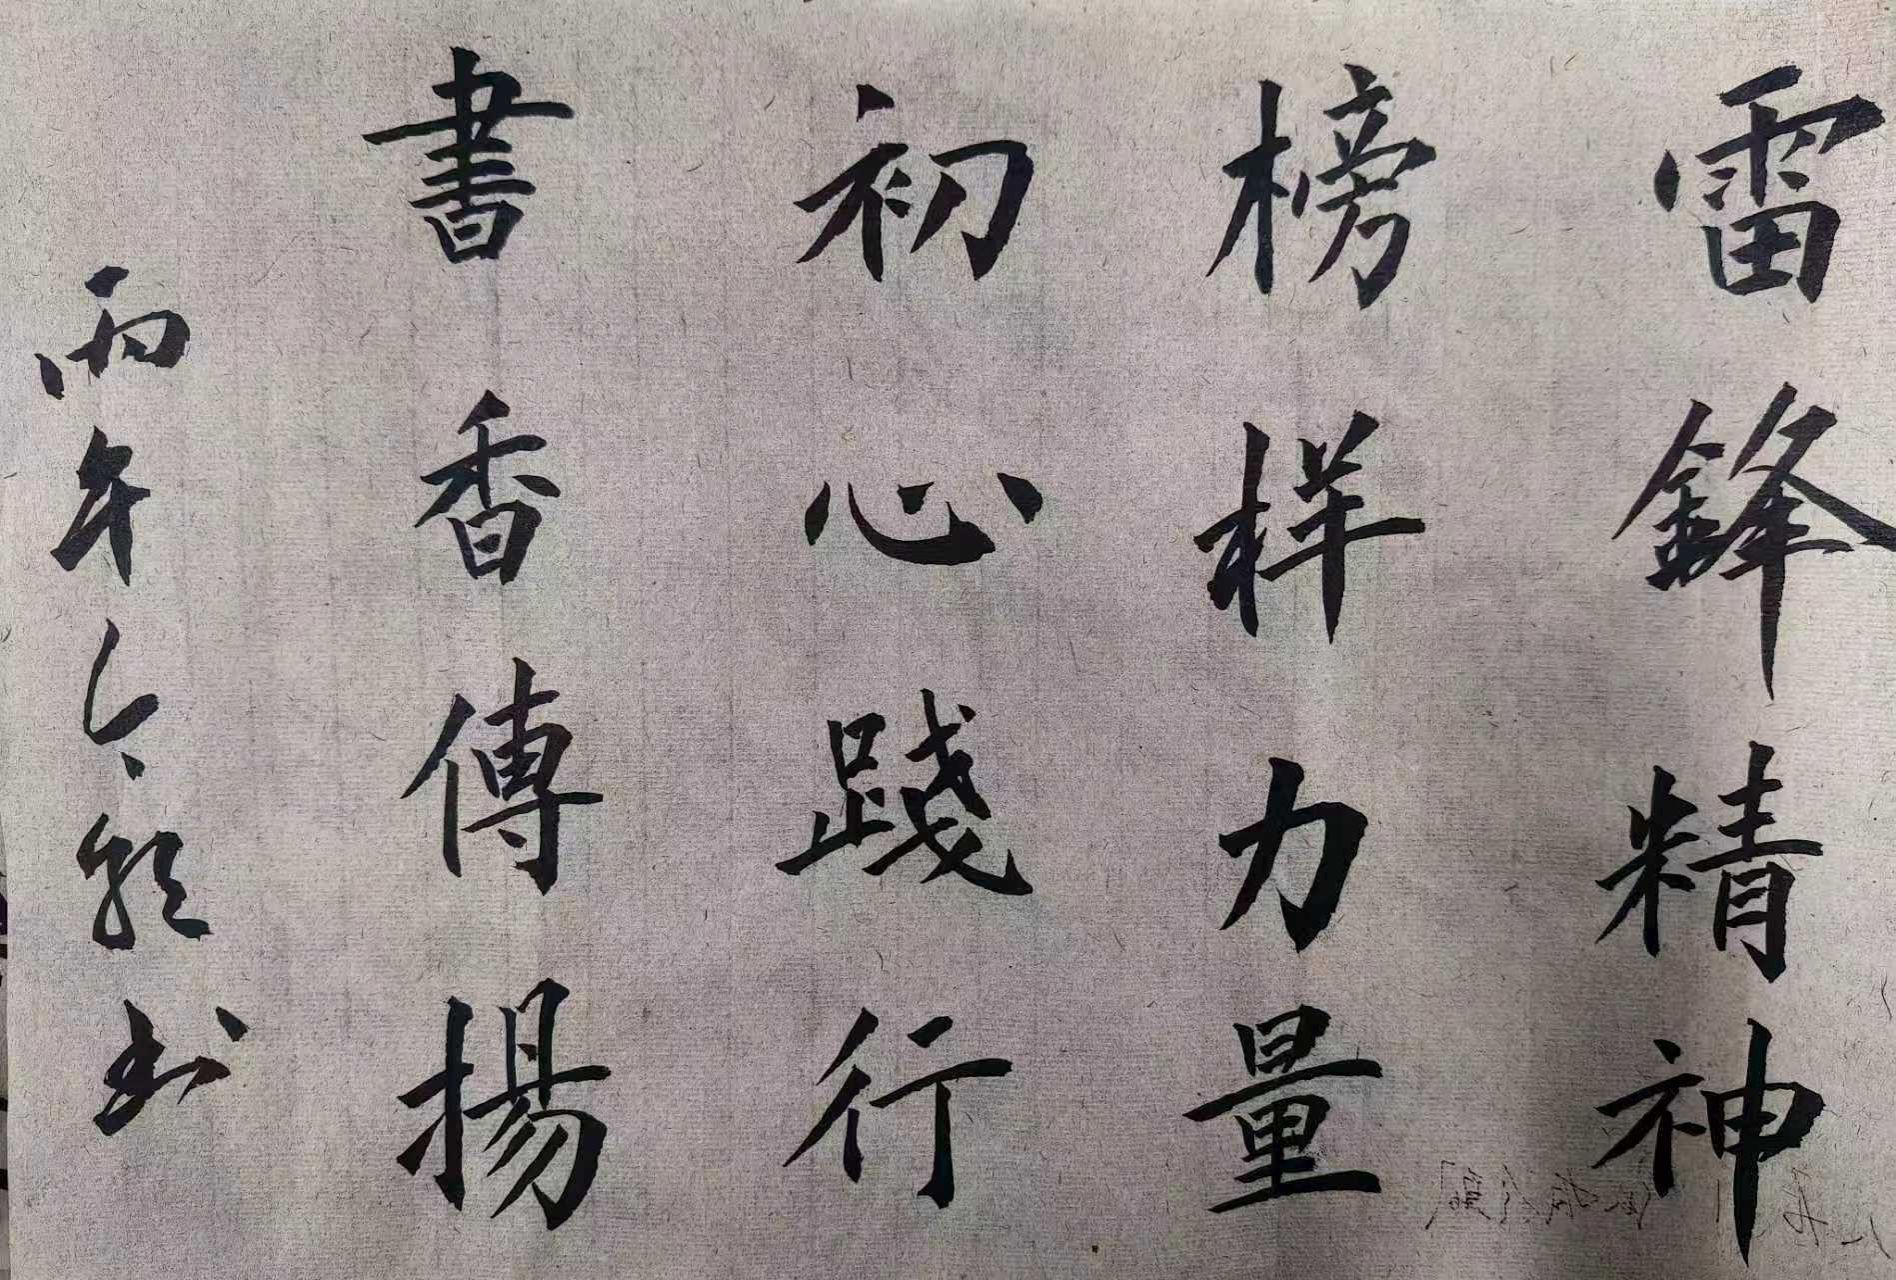 雷鋒精神
榜样力量
初心踐行
書香傳揚
丙午
书